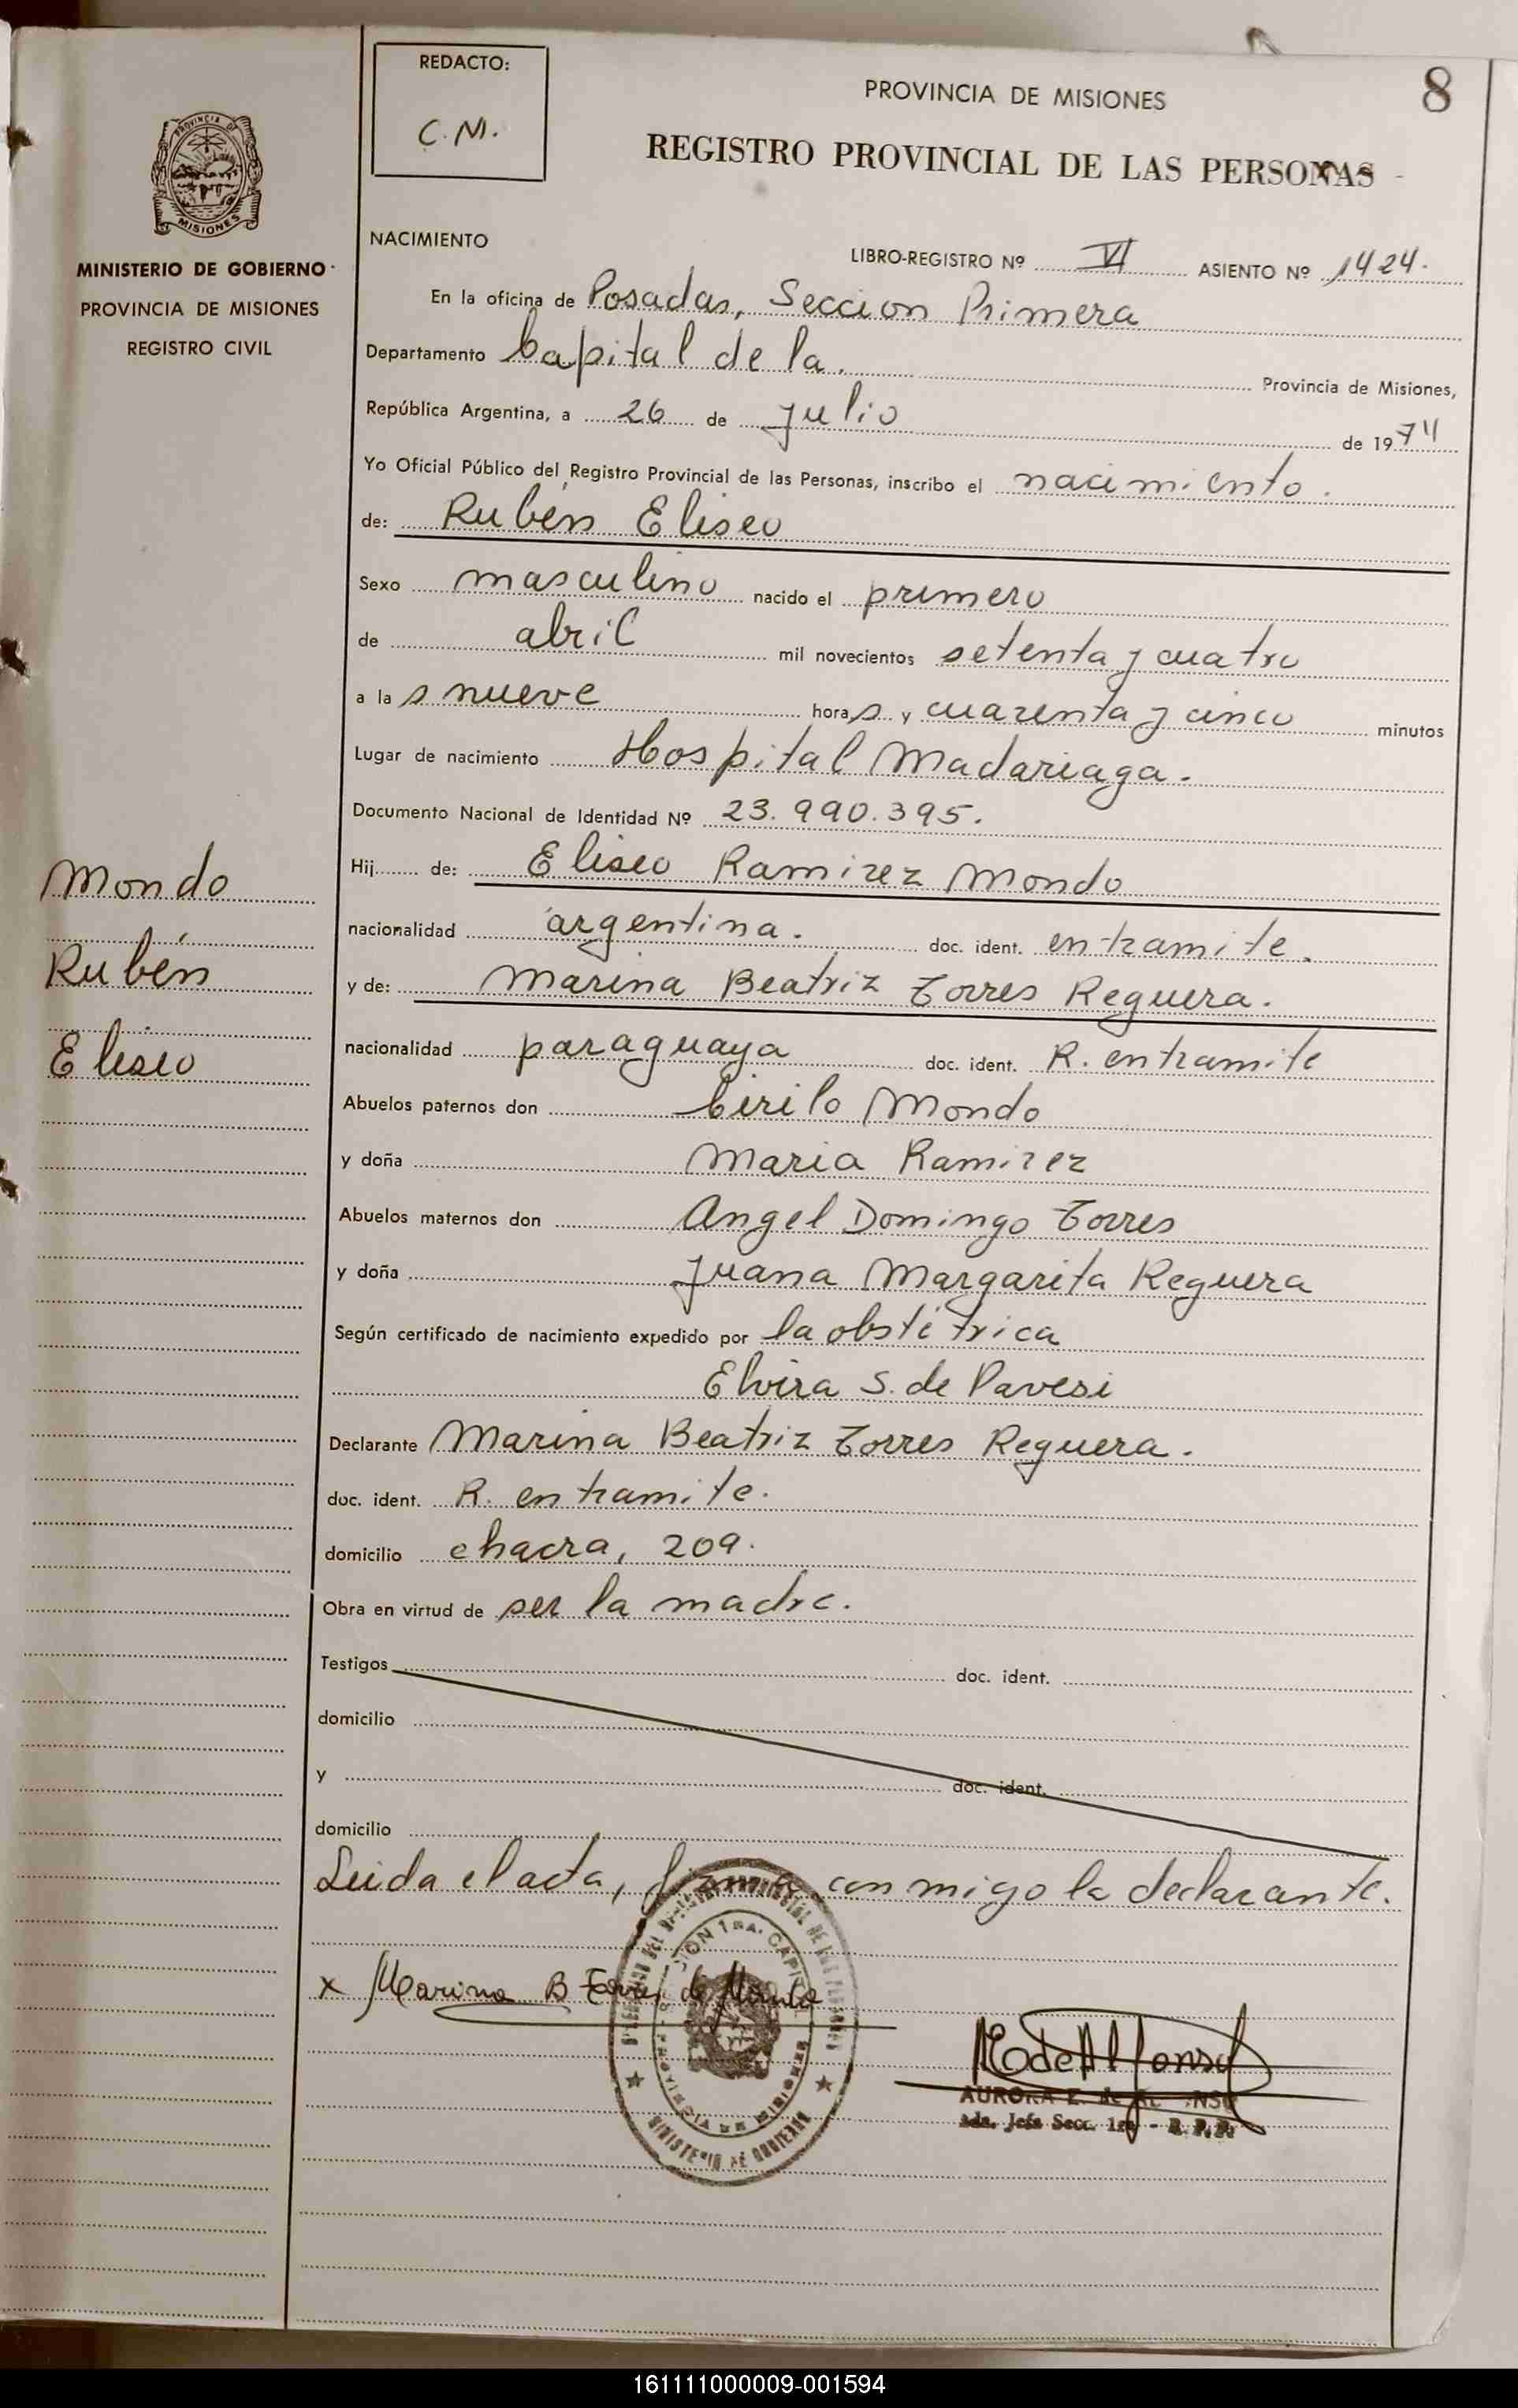 REDACTO:
C.M.
PROVINCIA DE MISIONES
8
REGISTRO PROVINCIAL DE LAS PERSONAS
PROVINCIA DE
MISIONES
MINISTERIO DE GOBIERNO
PROVINCIA DE MISIONES
REGISTRO CIVIL
NACIMIENTO
LIBRO-REGISTRO Nº VI ASIENTO Nº 1424.
En la oficina de Posadas, Seccion Primera
Departamento Capital de la. Provincia de Misiones,
República Argentina, a 26 de Julio de 1974
Yo Oficial Público del Registro Provincial de las Personas, inscribo el nacimiento.
de: Rubén Eliseo
Sexo masculino nacido el primero
de abril mil novecientos setenta y cuatro
a las nueve horas y cuarenta y cinco minutos
Lugar de nacimiento Hospital Madariaga.
Documento Nacional de Identidad Nº 23.990.395.
Hij de: Eliseo Ramirez Mondo
nacionalidad argentina. doc. ident. entramite.
y de: Marina Beatriz Torres Reguera.
nacionalidad paraguaya doc. ident. R. entramite
Mondo
Rubén
Eliseo
Abuelos paternos don Cirilo Mondo
y doña Maria Ramirez
Abuelos maternos don Angel Domingo Torres
y doña Juana Margarita Reguera
Según certificado de nacimiento expedido por la obstétrica
Elvira S. de Pavesi
Declarante Marina Beatriz Torres Reguera.
doc. ident. R. entramite.
domicilio chacra, 209.
Obra en virtud de ser la madre.
Testigos doc. ident.
domicilio
y doc. ident.
domicilio
Leida el acta, firma conmigo la declarante.
x Marina B Torres de Mondo
PROVINCIA DE MISIONES
MINISTERIO DE GOBIERNO
AURORA E. DE ALFONSO
Jefa Secc. 1ra - R. P. P.
161111000009-001594